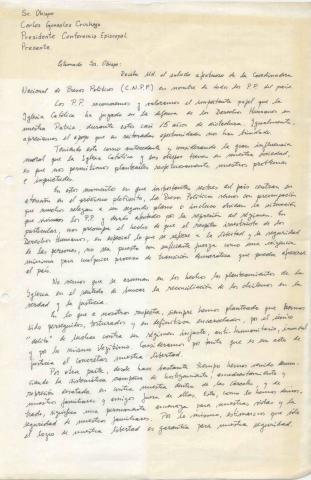 Sr. Obispo
Carlos González Cruchaga
Presidente Conferencia Episcopal
Presente
Estimado Sr. Obispo:
Reciba Ud. el saludo afectuoso de la Coordinadora
Nacional de Presos Políticos (C.N.P.P.) en nombre de todos los P.P. del país.
Los P.P. reconocemos y valoramos el importante papel que la
Iglesia Católica ha jugado en la defensa de los Derechos Humanos en
nuestra Patria durante estos casi 15 años de dictadura. Igualmente,
apreciamos el apoyo que en reiteradas oportunidades nos han brindado.
Teniendo esto como antecedente y considerando la gran influencia
moral que la Iglesia Católica y sus obispos tienen en nuestra sociedad,
es que nos permitimos plantearles respetuosamente nuestros problemas
e inquietudes.
En estos momentos en que importantes sectores del país centran su
atención en el próximo plebiscito, los Presos Políticos vemos con preocupación
que muchos relegan a un segundo plano e incluso olvidan la situación
que vivimos los P.P. y demás afectados por la represión del régimen. En
particular, nos preocupa el hecho de que el respeto irrestricto de los
Derechos Humanos, en especial lo que se refiere a la libertad y la seguridad
de las personas, no sea puesto con suficiente fuerza como una exigencia
mínima para cualquier proceso de transición democrática que pueda operarse
el país.
No vemos que se asuman en los hechos los planteamientos de la
Iglesia en el sentido de buscar la reconciliación de los chilenos en la
verdad y la justicia.
En lo que a nosotros respecta, siempre hemos planteado que hemos
sido perseguidos, torturados y en definitiva encarcelados, por el único
"delito" de luchar contra un régimen injusto, anti-humanitario, inmoral
y por lo mismo ilegítimo. Consideramos por tanto que es un acto de
justicia el concretar nuestra libertad.
Por otra parte, desde hace bastante tiempo hemos venido denun-
ciando la sistemática campaña de hostigamiento, amedrentamiento y
represión desatada en contra nuestra dentro de las cárceles, y de
nuestros familiares y amigos fuera de ellas. Esto, como lo hemos denun-
ciado, significa una permanente amenaza para nuestras vidas y la
seguridad de nuestros familiares. Por lo mismo, estimamos que sólo
el logro de nuestra libertad es garantía para nuestra seguridad.